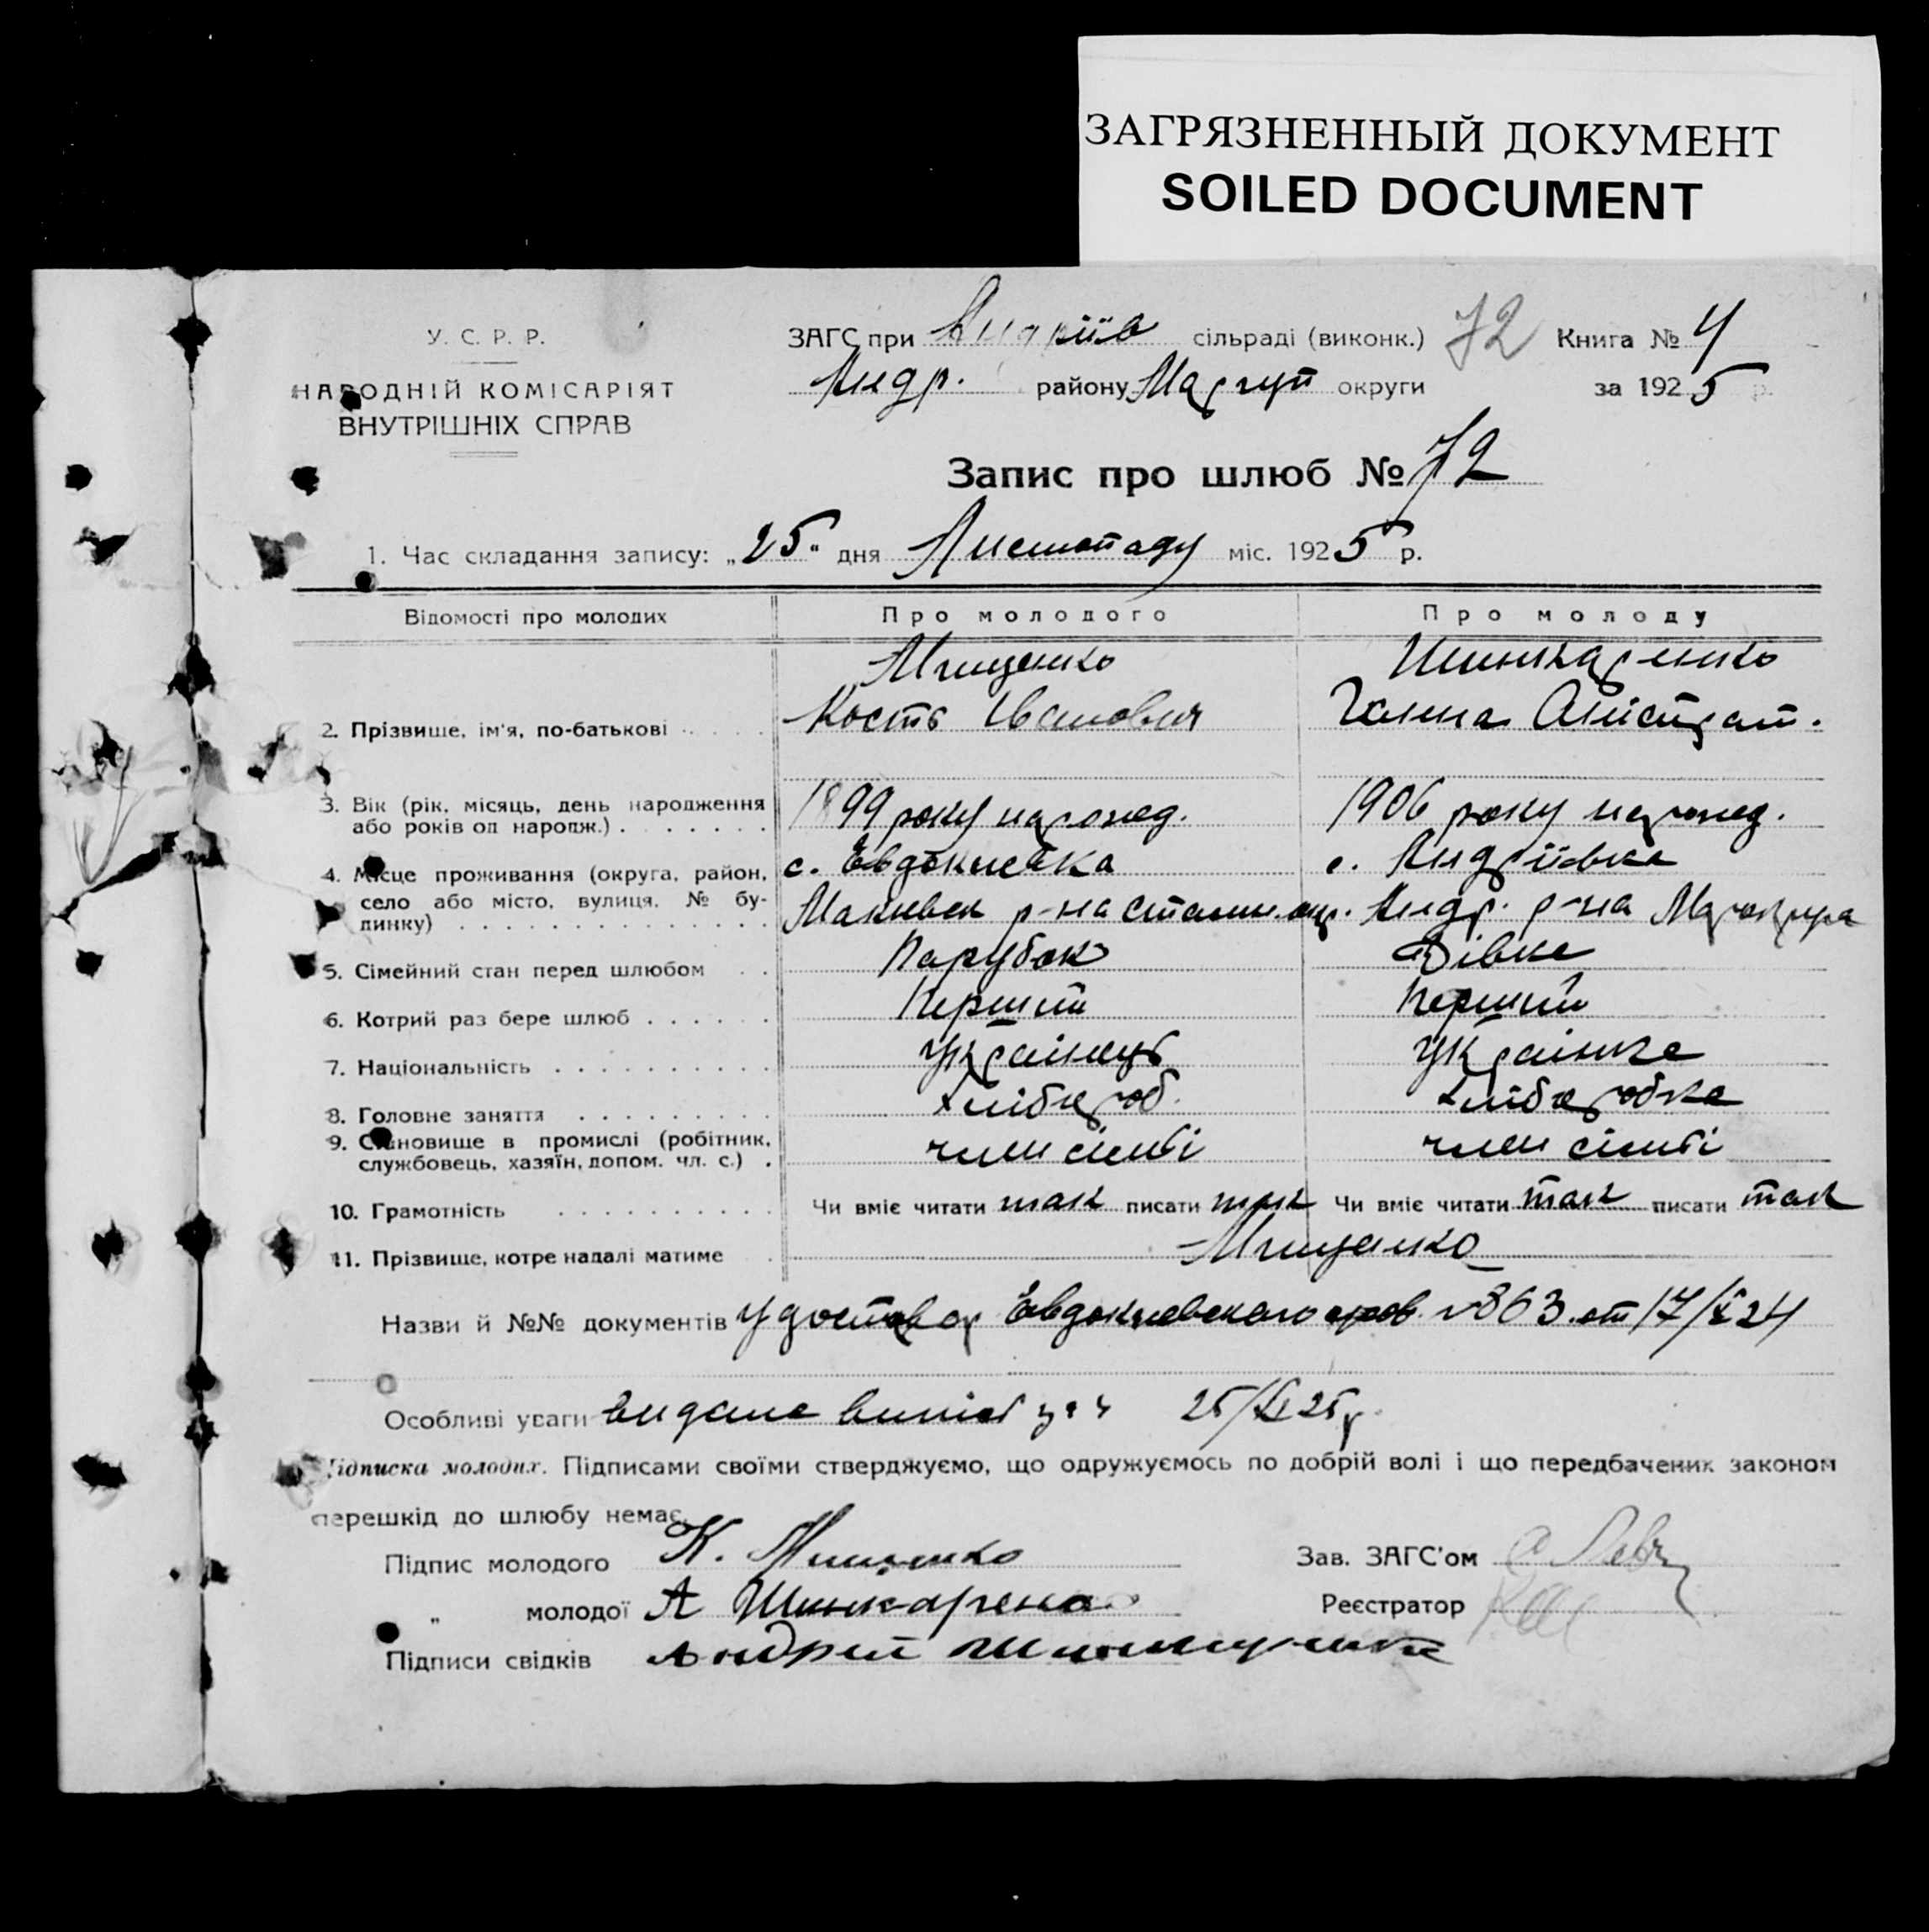 ЗАГРЯЗНЕННЫЙ ДОКУМЕНТ
SOILED DOCUMENT
У. С. Р. Р.
НАРОДНІЙ КОМІСАРІЯТ
ВНУТРІШНІХ СПРАВ
ЗАГС при Андріїв сільраді (виконк.) 72 Книга № 4
Андр. району Маріуп округи за 1925 р.
Запис про шлюб № 72
1. Час складання запису: „25" дня Листопаду міс. 1925 р.
Відомості про молодих Про молодого Про молоду
Мищенко Шинкаренко
2. Прізвище, ім'я, по-батькові Кость Іванович Галина
3. Вік (рік, місяць, день народження або років од народж.) 1899 року народ. 1906 року народ.
4. Місце проживання (округа, район, село або місто, вулиця, № будинку) с. Евдокиевка с. Андріївка
Макиевск р-на Сталин. окр. Андр. р-на
5. Сімейний стан перед шлюбом Парубок Дівка
6. Котрий раз бере шлюб Перший Перший
7. Національність Українець Українка
8. Головне заняття хлібороб. хліборобка
9. Становище в промислі (робітник, службовець, хазяїн, допом. чл. с.) член сімьі член сімьі
10. Грамотність Чи вміє читати так писати так Чи вміє читати так писати так
11. Прізвище, котре надалі матиме Мищенко
Назви й №№ документів Удостовер Евдокиевского № 863 от 17/X 24
Особливі уваги видана випись за ч 25/XI 25 р.
Підписка молодих. Підписами своїми стверджуємо, що одружуємось по добрій волі і що передбачених законом
перешкід до шлюбу немає.
Підпис молодого К. Мищенко Зав. ЗАГС'ом
„ молодої А Шинкаренко Реєстратор
Підписи свідків Андрей